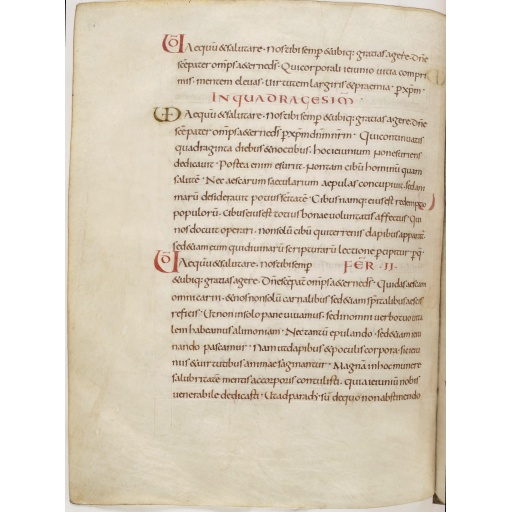 UD Aequū & salutare · Nos tibi semp & ubiq; gratias agere · Dne
scē pater omps aeterne ds · Qui corporali ieiunio uitia compri
mis · mentem eleuas · uirtutem largiris & praemia · p xpm ·
IN QUADRAGESIM
UD Aequū & salutare · Nos tibi semp & ubiq; gratias agere · Dne
scē pater omps aeterne ds p xpm dnm nrm · Qui continuatis
quadraginta diebus & noctibus · hoc ieiunium non esuriens
dedicauit · Postea enim esuriit · non tam cibū hominū quam
salutē · Nec aescarum saecularium aepulas concupiuit · sed ani
marū desiderauit potius scitatē · Cibus namq; eius est redemptio
populorū · Cibus eius est totius bonae uoluntatis affectus · Qui
nos docuit operari · non solū cibū qui terrenis dapibus apparat
sed & eum qui diuinarū scripturarū lectione percipitur · p q
UD Aequū & salutare · Nos tibi semp FER · II ·
& ubiq; gratias agere · Dne scē pat omps aeterne ds · Qui das aescam
omni carni · & nos non solū carnalibus sed & iam spiritalibus aescis
reficis · Ut non in solo pane uiuamus · sed in omni uerbo tuo uita
lem habeamus alimoniam · Nec tantū epulando · sed & iam ieiu
nando pascamur · Nam ut dapibus & poculis corpora · sic ieiu
niis & uirtutibus animae saginantur · Magnā in hoc munere
salubritatē mentis ac corporis contulisti · quia ieiuniū nobis
uenerabile dedicasti · Ut ad paradysū de quo non abstinendo